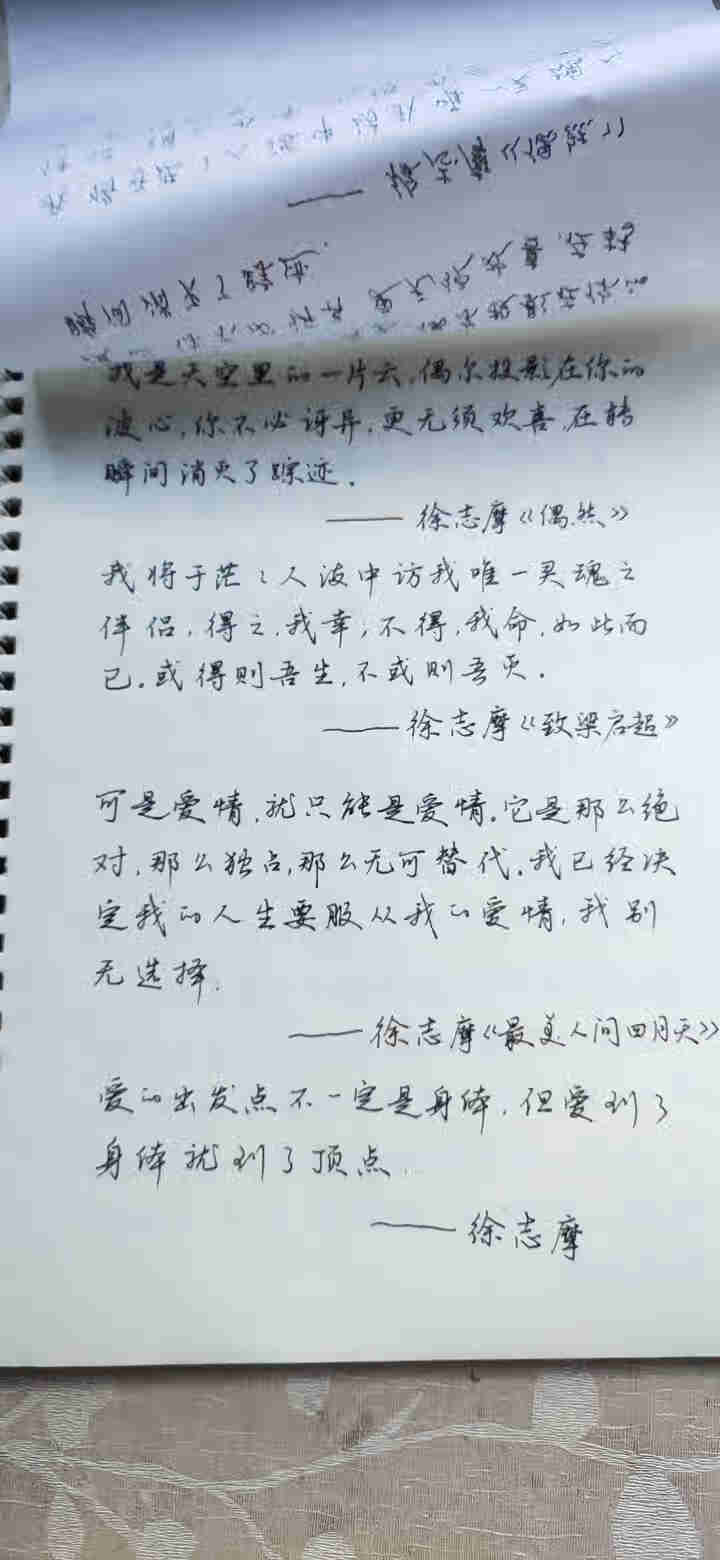 我是天空里的一片云,偶尔投影在你的
波心,你不必讶异,更无须欢喜,在转
瞬间消灭了踪迹.
——徐志摩《偶然》
我将于茫々人海中访我唯一灵魂之
伴侣,得之,我幸,不得,我命,如此而
已。或得则吾生,不或则吾灭.
——徐志摩《致梁启超》
可是爱情,就只能是爱情。它是那么绝
对,那么独占,那么无可替代。我已经决
定我的人生要服从我的爱情,我别
无选择.
——徐志摩《最美人间四月天》
爱的出发点不一定是身体,但爱到了
身体就到了顶点.
——徐志摩